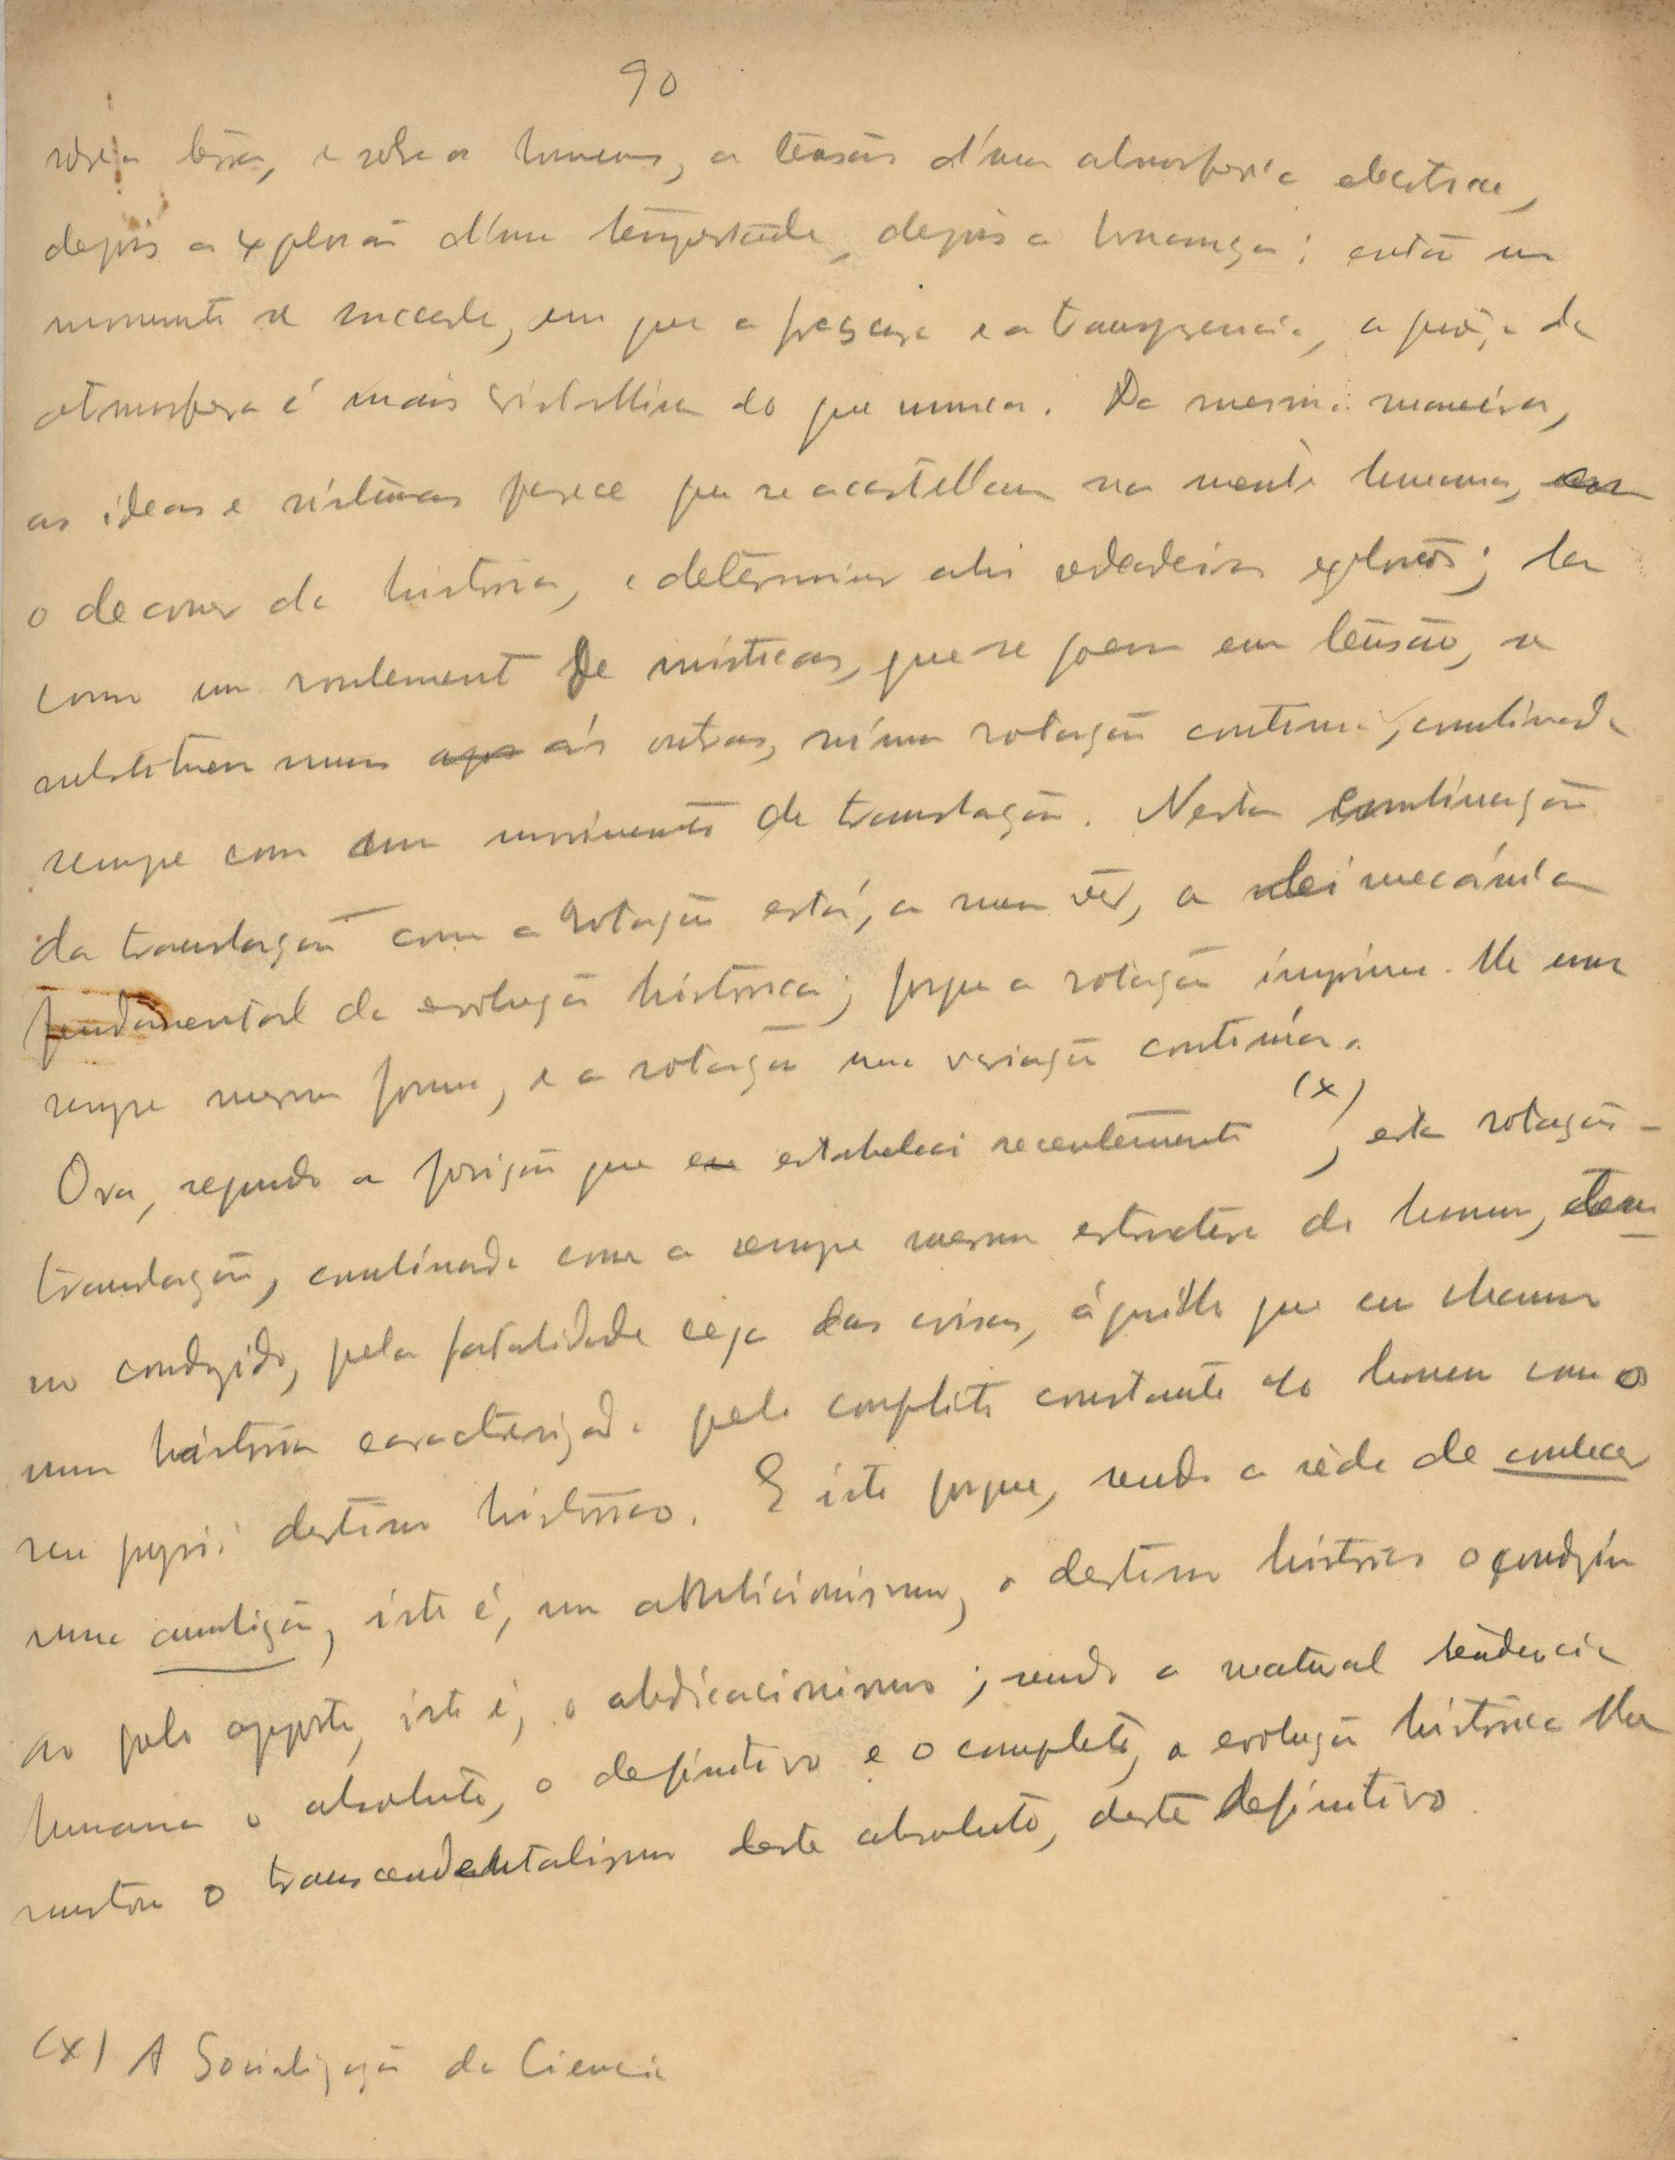 90
sobre a terra, e sobre os homens, a tensão d'uma atmosfera electrica,
depois a explosão d'uma tempestade, depois a bonança; então um
momento se succede, em que a frescura e a transparencia, a da
atmosfera é mais cristallina do que nunca. Da mesma maneira,
as ideas e sistemas parece que se acastellam na mente humana,
o decorrer da historia, e determinam ahi verdadeiras explosões; ha
como um roulement de misticas, que se poem em tensão, se
substituem umas ás outras, n'uma rotação continua, combinada
sempre com um movimento de translação. Nesta combinação
da translação com a rotação está, a meu vêr, a lei mecánica
fundamental da evolução histórica; porque a rotação imprime-lhe uma
sempre mesma forma, e a rotação uma variação continúa.
Ora, segundo a posição que eu estabeleci recentemente (x), esta rotação-
translação, combinada com a sempre mesma estrutura do homem,
no conduzido, pela fatalidade cega das coisas, áquillo que eu chamo
uma história caracterizada pelo conflito constante do homem com o
seu proprio destino histórico. E isto porque, sendo a sêde de conhecer
uma ambição, isto é, um ambicionismo, o destino histórico o conduziu
ao polo opposto, isto é, o abdicacionismo; sendo a natural tendencia
humana o absoluto, o definitivo e o completo, a evolução histórica lhe
mostra o transcendentalismo deste absoluto, deste definitivo.
(x) A Socialização da Ciencia